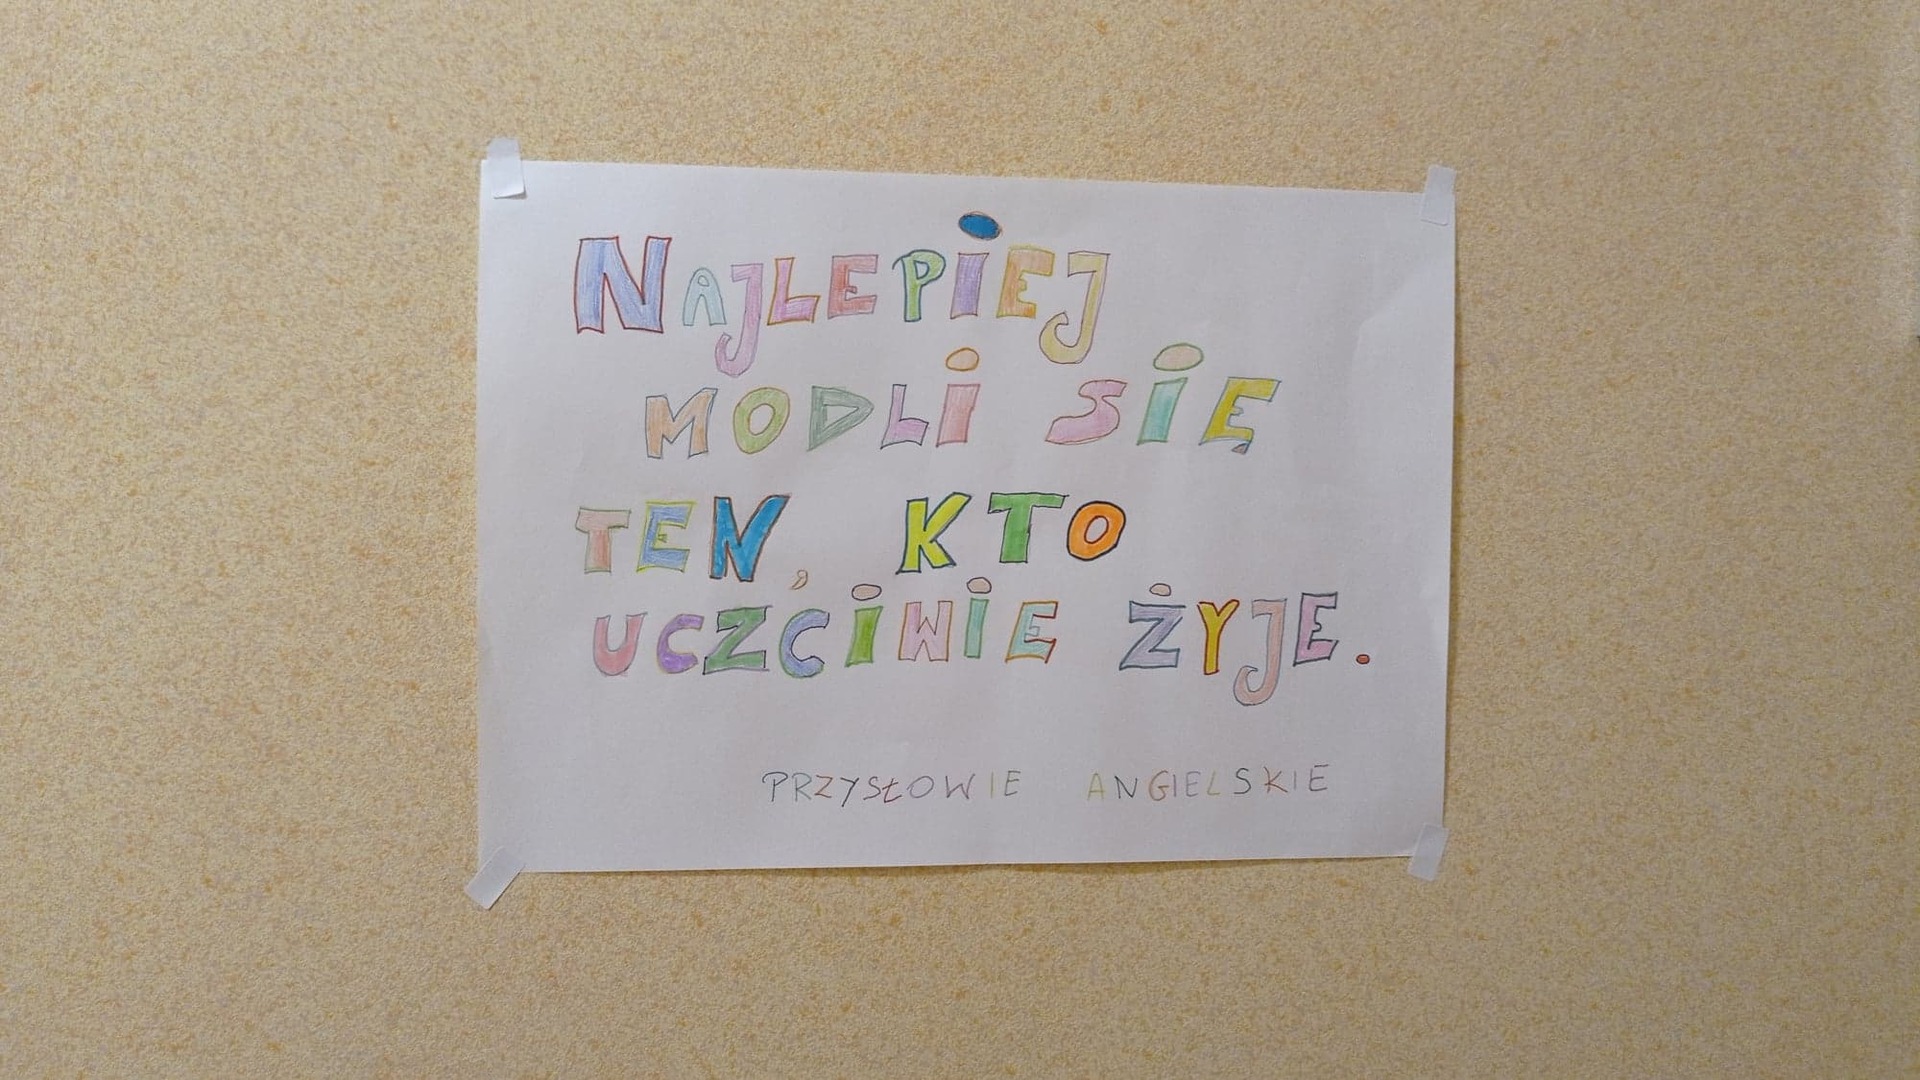 NAJLEPIEJ
MODLI SIĘ
TEN, KTO
UCZCIWIE ŻYJE.
PRZYSŁOWIE ANGIELSKIE